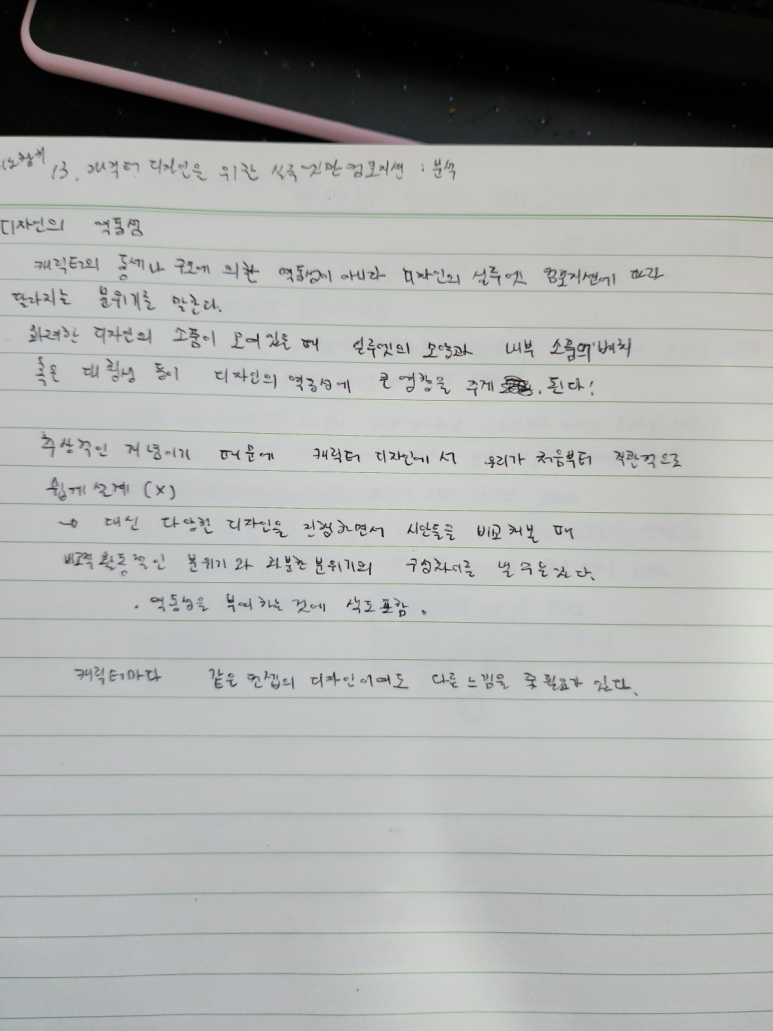 13. 캐릭터 디자인을 위한 컴포지션 : 분석
디자인의 역동성
캐릭터의 동세나 구도에 의한 역동성이 아니라 디자인의 실루엣 컴포지션에 따라
달라지는 분위기를 말한다.
화려한 디자인의 소품이 모여있을 때 실루엣의 모양과 내부 소품의 배치
혹은 대칭성 등이 디자인의 역동성에 큰 영향을 주게 된다!
추상적인 개념이기 때문에 캐릭터 디자인에서 우리가 처음부터 직관적으로
쉽게 설계 (X)
→ 대신 다양한 디자인을 진행하면서 시안들을 비교해볼 때
비교적 활동적인 분위기과 차분한 분위기의 구성차이를 낼 수는 있다.
. 역동성을 부여하는 것에 색도 포함.
캐릭터마다 같은 컨셉의 디자인이여도 다른 느낌을 줄 필요가 있다.